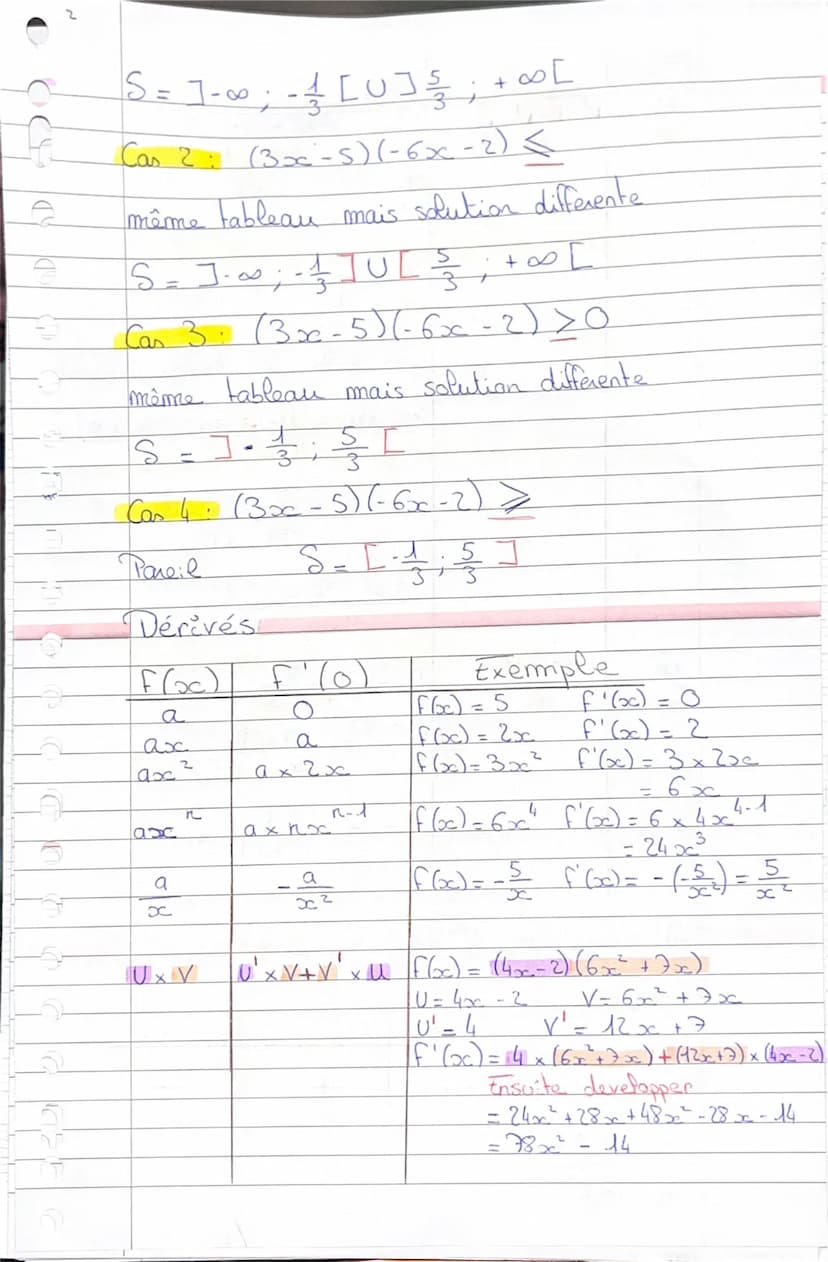 2
S = ]-∞ ; -1/3 [ U ] 5/3 ; +∞ [
Cas 2 : (3x - 5)(-6x - 2) ⩽
même tableau mais solution différente
S = ]-∞ ; -1/3 ] U [ 5/3 ; +∞ [
Cas 3 : (3x - 5)(-6x - 2) > 0
même tableau mais solution différente
S = ] -1/3 ; 5/3 [
Cas 4 : (3x - 5)(-6x - 2) ⩾
Pareil S = [ -1/3 ; 5/3 ]
Dérivés
f(x) f'(0) Exemple
a 0 f(x) = 5 f'(x) = 0
ax a f(x) = 2x f'(x) = 2
ax² a × 2x f(x) = 3x² f'(x) = 3 × 2x
= 6x
axⁿ a × nxⁿ⁻¹ f(x) = 6x⁴ f'(x) = 6 × 4x⁴⁻¹
= 24x³
a/x -a/x² f(x) = -5/x f'(x) = -(-5/x²) = 5/x²
U × V U' × V + V' × U f(x) = (4x - 2)(6x² + 7x)
U = 4x - 2 V = 6x² + 7x
U' = 4 V' = 12x + 7
f'(x) = 4 × (6x² + 7x) + (12x + 7) × (4x - 2)
Ensuite developper
= 24x² + 28x + 48x² - 28x - 14
= 78x² - 14